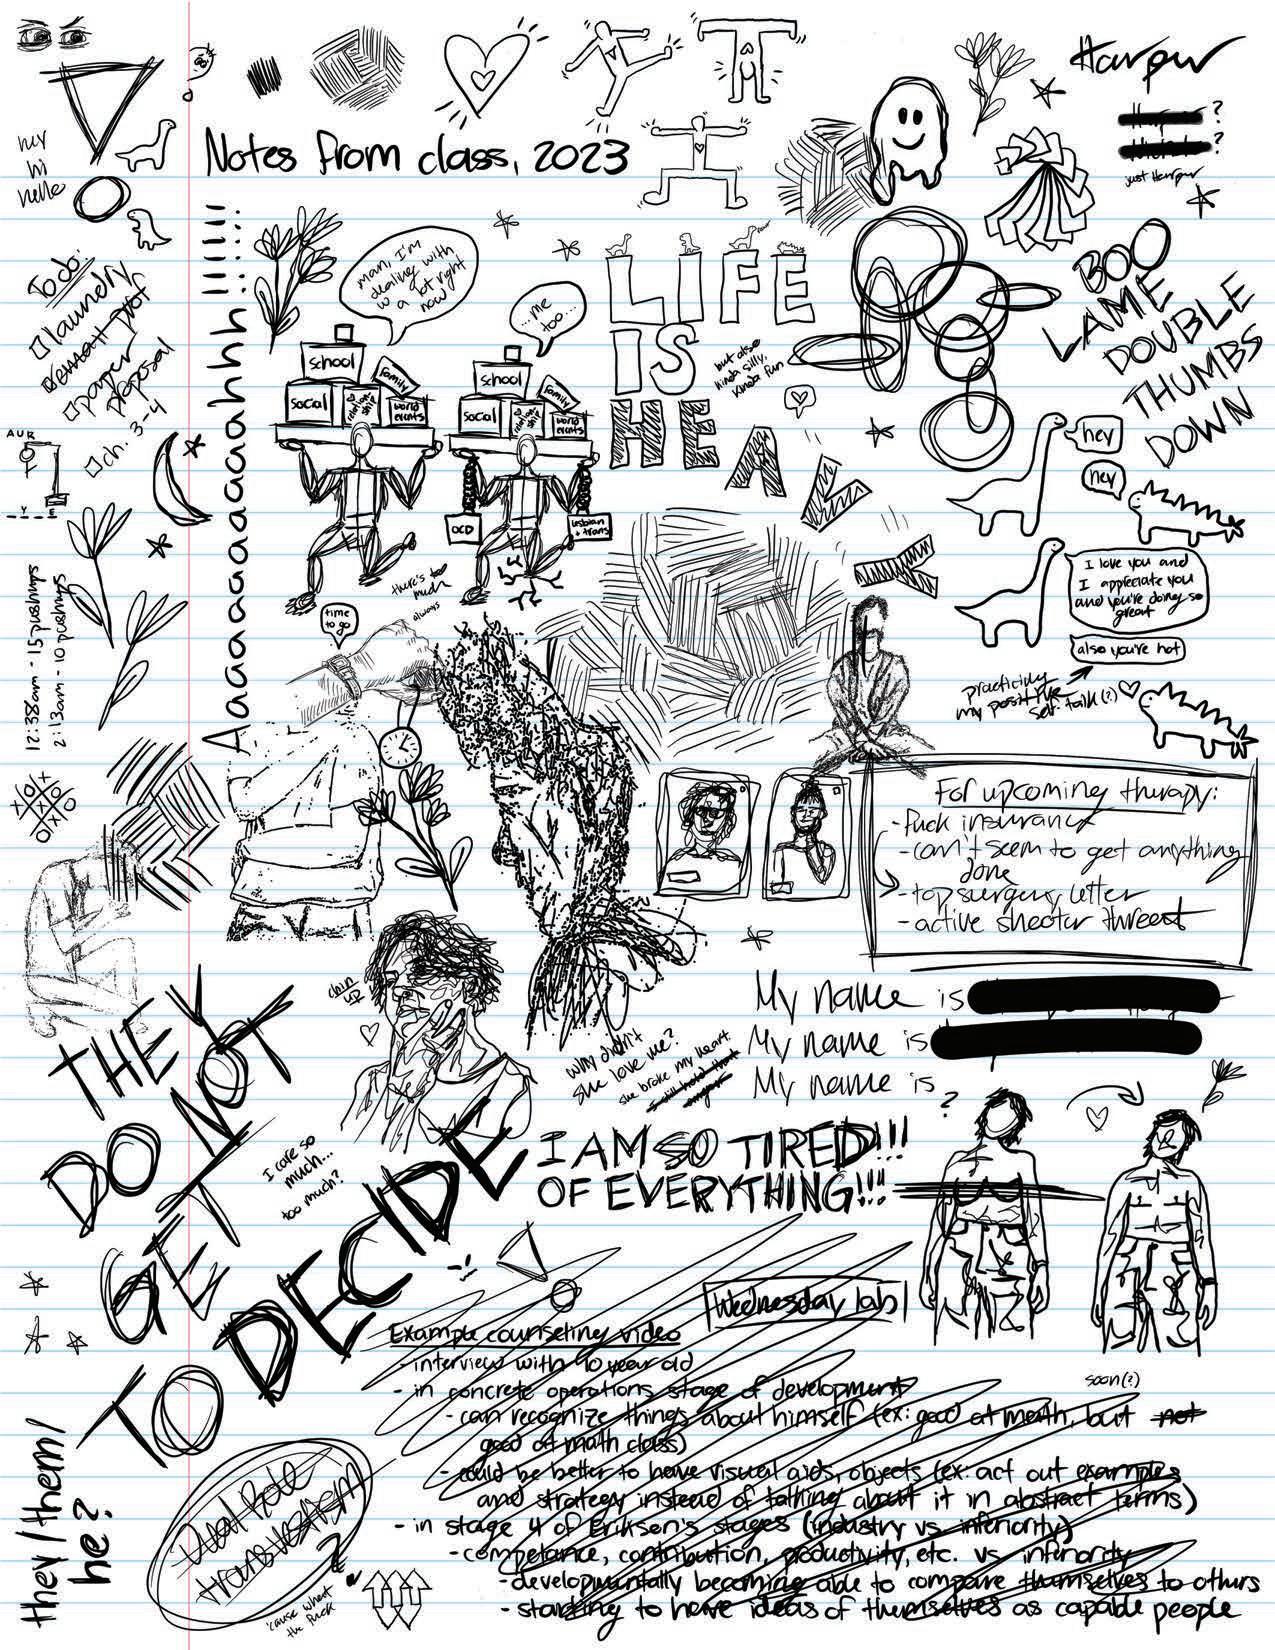 Harper
?
?
just Harper
Notes from class, 2023
hey
hi
hello
To do:
laundry
paper
proposal
ch. 3-4
Aaaaaaaaaaaaaahhh!!!!!!
man, I'm
dealing with
a lot right
now
...me
too...
school
family
social
relationship
world
events
school
family
social
relationship
world
events
OCD
lesbian
+ trans
there's too
much
always
LIFE
IS
HEAVY
but also
kinda silly,
kinda fun
BOO
LAME
DOUBLE
THUMBS
DOWN
hey
hey
I love you and
I appreciate you
and you're doing so
great
also you're hot
practicing
my positive
self talk(?)
A U R
Y E
12:38am - 15 pushups
2:13am - 10 pushups
time
to go
X O
X X O
O X O
For upcoming therapy:
- fuck insurance
- can't seem to get anything
done
- top surgery letter
- active shooter threat
My name is
My name is
My name is
?
chin
up
why didn't
she love me?
she broke my heart
still hold that
anger
THEY
DO NOT
GET
TO DECIDE
I care so
much...
too much?
I AM SO TIRED!!!
OF EVERYTHING!!!
Wednesday lab
soon(?)
Example counseling video
- interview with 10 year old
- in concrete operations stage of development
- can recognize things about himself (ex: good at math, but not
good at math class)
- could be better to have visual aids, objects (ex: act out examples
and strategy instead of talking about it in abstract terms)
- in stage 4 of Erikson's stages (industry vs. inferiority)
- competance, contribution, productivity, etc. vs inferiority
- developmentally becoming able to compare themselves to others
- starting to have ideas of themselves as capable people
they/them/
he?
Dual Role
transvestism
?
'cause what
the fuck